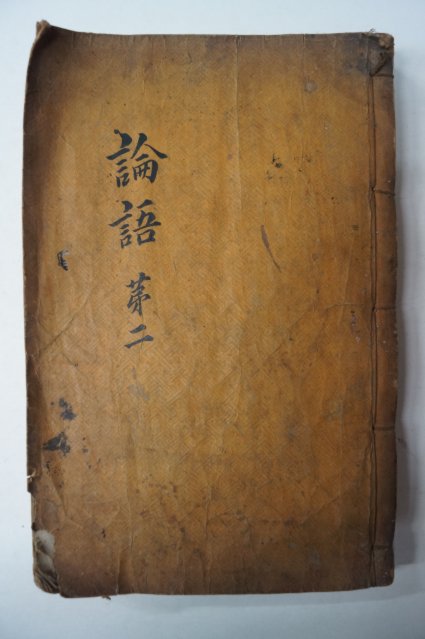 論語 第二